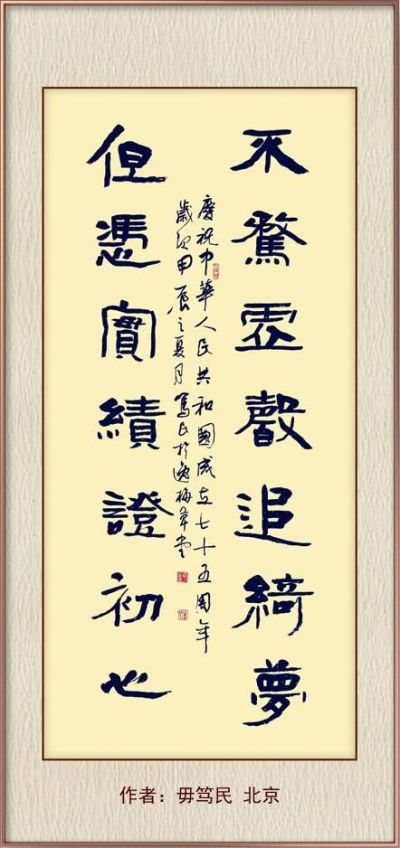 不騖虛聲追綺夢
慶祝中華人民共和國成立七十五周年
歲次甲辰之夏月篤民於逸梅草堂
但憑實績證初心
作者：毋笃民 北京